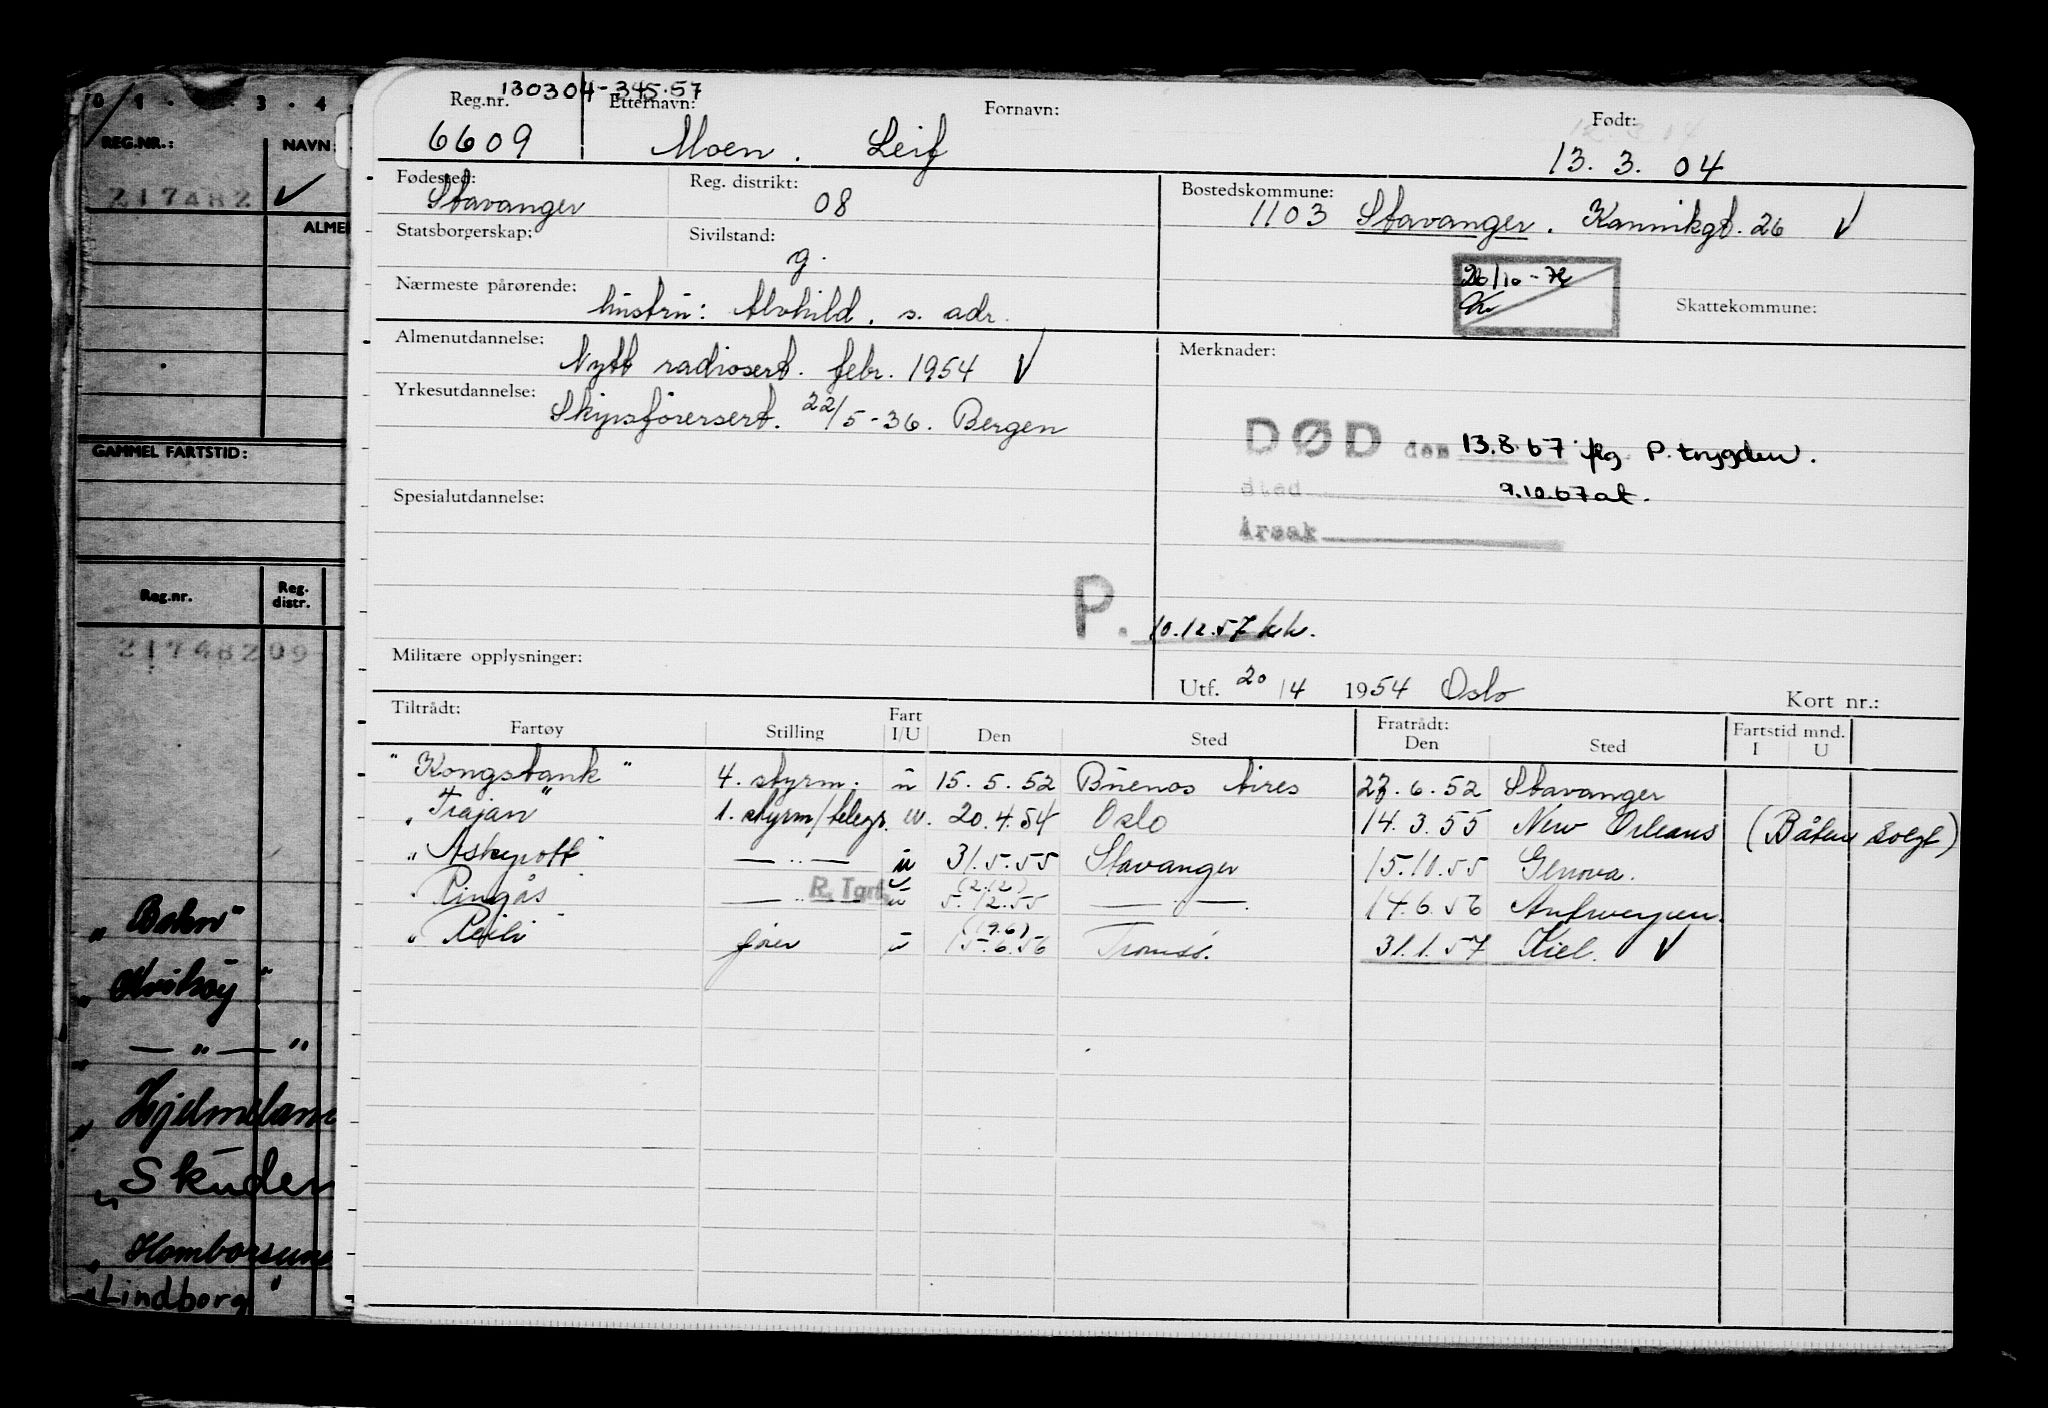 130304-345.57
Reg.nr. Etternavn: Fornavn: Født:
6609 Moen. Leif 13. 3. 04
Fødested: Reg. distrikt: Bostedskommune:
Stavanger 08 1103 Stavanger. Kannikgt. 26 √
Statsborgerskap: Sivilstand:
g.
26/10-72
Nærmeste pårørende: Skattekommune:
hustru: Alvhild. s. adr.
Almenutdannelse: Merknader:
Nytt radiosert. febr. 1954 √
Yrkesutdannelse:
Skipsførersert. 22/5-36. Bergen
DØD den 13.8.67 flg P. trygden.
Sted 9.10.67 at.
Spesialutdannelse:
Årsak
P. 10.12.57 kk.
Militære opplysninger:
Utf. 20/4 1954 Oslo Kort nr.:
Tiltrådt: Fratrådt: Fartstid mnd.
Fartøy Stilling Fart I/U Den Sted Den Sted I U
"Kongsbank" 4. styrm. u 15. 5. 52 Buenos Aires 23. 6. 52 Stavanger
"Trajan" 1. styrm/telegr. u. 20.4.54 Oslo 14. 3. 55 New Orleans (Båten solgt)
"Askepott" — " — u 31.5.55 Stavanger 15.10.55 Genova.
(2.12)
"Ringås" — " — R. Tgrf. u 5.12.55 — " —. 14.6.56 Antwerpen.
(9.6)
fører u 15.6.56 Tromsø. 31.1.57 Kiel. √
0 1 . 3 . 4
REG.NR.: NAVN:
217482 √
ALME
GAMMEL FARTSTID:
Reg.nr. Reg. distr.
21748209
"
" "
" — " — "
" Hjelmelan
" Skuden
" Homborsun
"Lindborg"